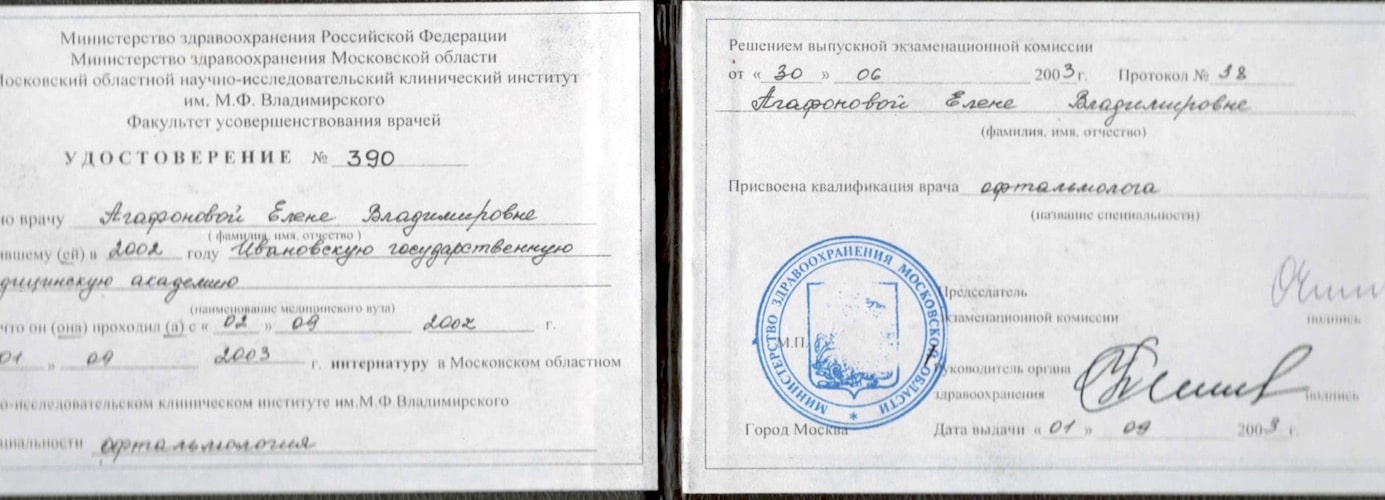 Министерство здравоохранения Российской Федерации
Министерство здравоохранения Московской области
Московский областной научно-исследовательский клинический институт
им. М.Ф. Владимирского
Факультет усовершенствования врачей
УДОСТОВЕРЕНИЕ № 390
врачу Агафоновой Елене Владимировне
( фамилия, имя, отчество )
вшему (ей) в 2002 году Ивановскую государственную
дицинскую академию
(наименование медицинского вуза)
что он (она) проходил (а) с « 02 » 09 2002 г.
01 » 09 2003 г. интернатуру в Московском областном
о-исследовательском клиническом институте им.М.Ф.Владимирского
циальности офтальмология
Решением выпускной экзаменационной комиссии
от « 30 » 06 2003 г. Протокол № 38
Агафоновой Елене Владимировне
(фамилия, имя, отчество)
Присвоена квалификация врача офтальмолога
(название специальности)
МИНИСТЕРСТВО ЗДРАВООХРАНЕНИЯ МОСКОВСКОЙ ОБЛАСТИ
М.П.
Председатель
экзаменационной комиссии подпись
Руководитель органа
здравоохранения подпись
Город Москва Дата выдачи « 01 » 09 2003 г.